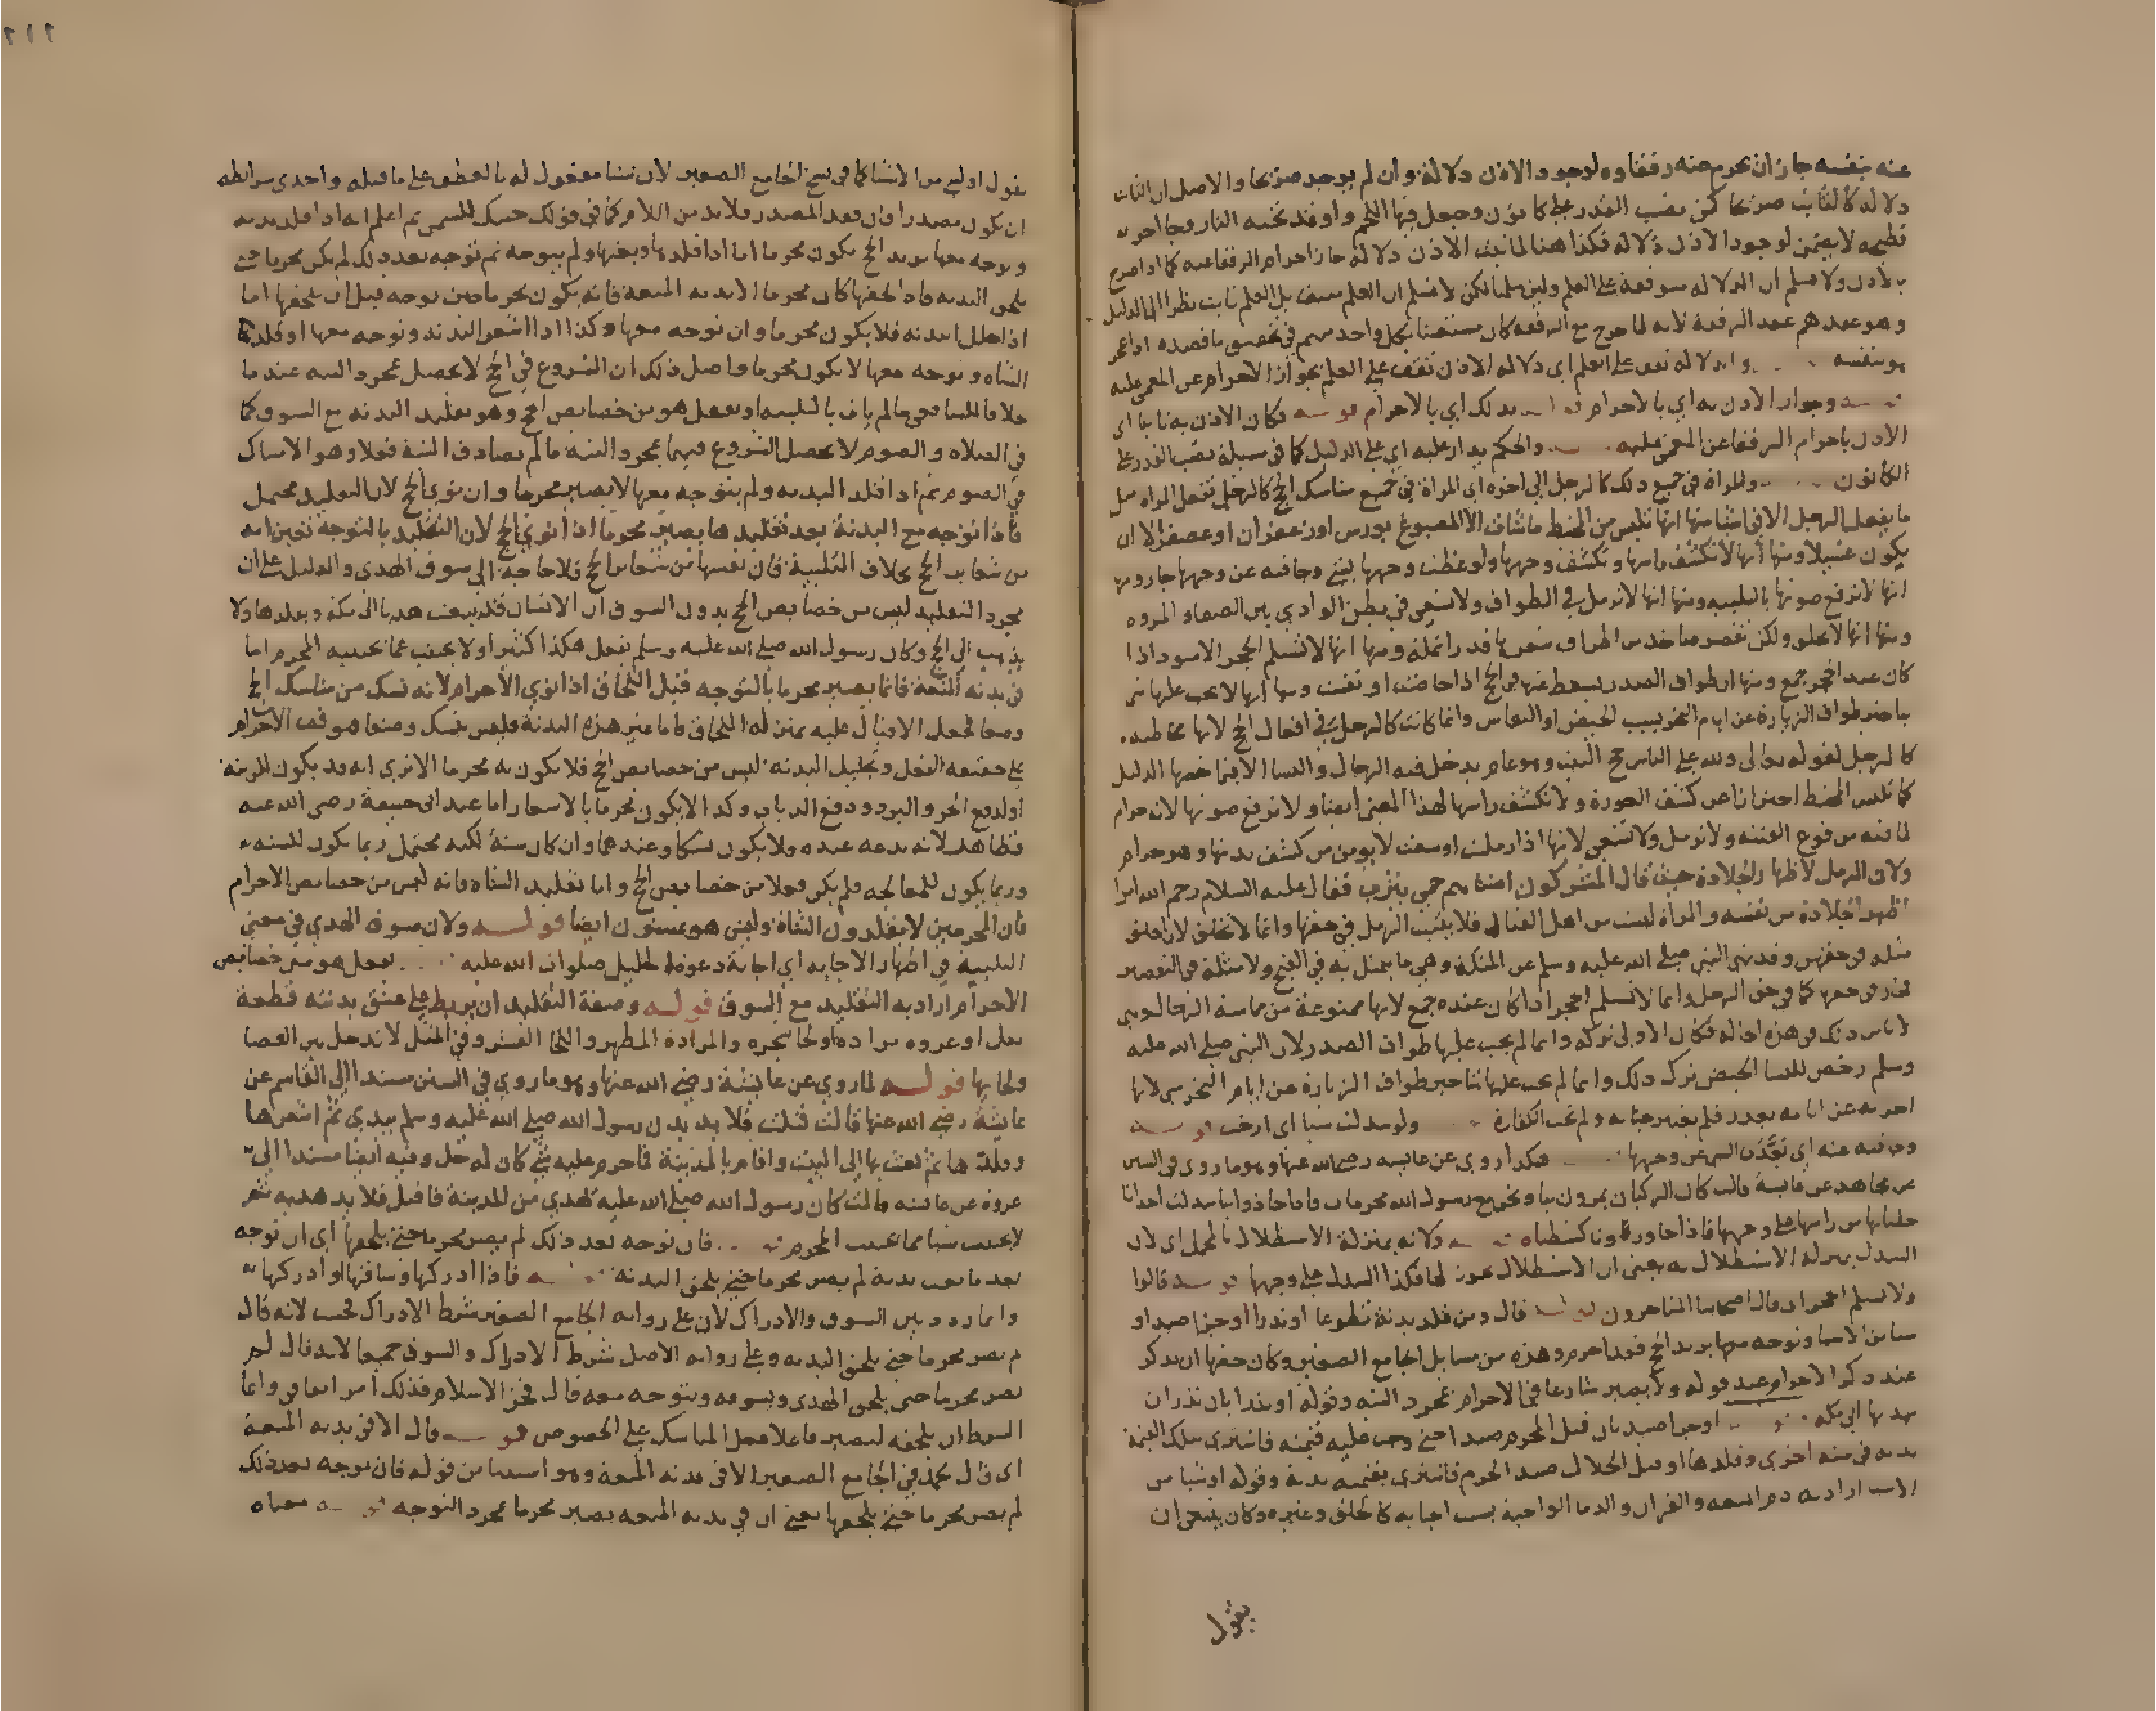 عنه بنفسه جاز ان يحرم عنه رفقاؤه لوجود الاذن دلالة وان لم يوجد صريحا والاصل ان الثابت
دلالة كالثابت صريحا كمن نصب القدر على كانون وجعل فيها اللحم واوقد تحته النار وجا اخر
فطبخه لا يضمن لوجود الاذن دلالة فكذا هنا لما ثبت الاذن دلالة جاز احرام الرفقا عنه كما اذا صرح
بالاذن ولا نسلم ان الدلالة موقوفة على العلم ولين سلمنا لكن لا نسلم ان العلم منتف بل العلم ثابت نظرا الى الدليل
وهو عقدهم عقد الرفقة لانه لما خرج مع الرفقة كان مستعينا بكل واحد منهم في تحصيل ما قصده اذا عجز
هو بنفسه والدلالة تقف على العلم اي دلالة الاذن تقف على العلم بجواز الاحرام عن المغمى عليه
وجواز الاذن به اي بالاحرام بذلك اي بالاحرام قوله فكان الاذن به ثابتا اي
الاذن باحرام الرفقا عن المغمى عليه والحكم يدار عليه اي على الدليل كما في مسيلة نصب القدر على
الكانون والمراة في جميع ذلك كالرجل الى اخره اي المراة في جميع مناسك الحج كالرجل تفعل المراه مثل
ما يفعل الرجل الا في اشيا منها انها تلبس من المخيط ما شات الا المصبوغ بورس او زعفران او عصفر الا ان
يكون غسيلا ومنها انها لا تكشف راسها وتكشف وجهها ولو غطت وجهها بشي وجافته عن وجهها جاز ومنها
انها لا ترفع صوتها بالتلبيه ومنها انها لا ترمل في الطواف ولا تسعى في بطن الوادي بين الصفا والمروه
ومنها انها لا تحلق ولكن تقصر فتاخذ من اطراف شعرها قدر انملة ومنها انها لا تستلم الحجر الاسود اذا
كان عند الحجر جمع ومنها ان طواف الصدر يسقط عنها في الحج اذا حاضت او نفست ومنها انها لا يجب عليها شي
بتاخير طواف الزيارة عن ايام النحر بسبب الحيض او النفاس وانما كانت كالرجل في افعال الحج لانها مخاطبه
كالرجل لقوله تعالى ولله على الناس حج البيت وهو عام يدخل فيه الرجال والنسا الا فيما خصها الدليل
كما تلبس المخيط احترازا عن كشف العورة ولا تكشف راسها لهذا المعنى ايضا ولا ترفع صوتها لانه حرام
لما فيه من وقوع الفتنه ولا ترمل ولا تسعى لانها اذا رملت او سعت لا يومن من كشف بدنها وهو حرام
ولان الرمل لاظهار الجلادة حيث قال المشركون اضناهم حمى يثرب فقال عليه السلام رحم الله امرا
اظهر الجلادة من نفسه والمراة ليست من اهل القتال فلا يثبت الرمل في حقها وانما لا تحلق لان الحلق
مثله في حقهن وقد نهى النبي صلى الله عليه وسلم عن المثلة وهي ما يمثل به في القبح ولا مثلة في التقصير
فجرى في حقها كما في حق الرجل وانما لا تستلم الحجر اذا كان عنده جمع لانها ممنوعة من مماسة الرجال
ذلك في هذه الحاله فكان الاولى تركه وانما لم يجب عليها طواف الصدر لان النبي صلى الله عليه
وسلم رخص للنسا الحيض ترك ذلك وانما لم يجب عليها بتاخير طواف الزيارة عن ايام النحر شي لانها
اخرته عن ايامه بعذر فلم يعتبر جنايه ولم تجب الكفارة ولو سدلت شيا اي ارخت قوله
وجافته عنه اي بعدت الشي عن وجهها هكذا روي عن عايشه رضي الله عنها وهو ما روي في السنن
عن مجاهد عن عايشة قالت كان الركبان يمرون بنا ونحن مع رسول الله محرمات فاذا حاذوا بنا سدلت احدانا
جلبابها من راسها على وجهها فاذا جاوزونا كشفناه ولانه بمنزلة الاستظلال بالمحمل اي لان
السدل بمنزله الاستظلال به يعني ان الاستظلال يجوز لها فكذا السدل على وجهها قوله قالوا
ولا تستلم الحجر اي قال اصحابنا المتاخرون قوله قال ومن قلد بدنة تطوعا او نذرا او جزا صيد او
شيا من الاشيا وتوجه معها يريد الحج فقد احرم وهذه من مسايل الجامع الصغير وكان حقها ان يذكر
عند ذكر الاحرام عند قوله ولا يصير شارعا في الاحرام بمجرد النيه وقوله او نذرا بان نذر ان
يهديها الى مكه او جزا صيد بان قتل المحرم صيدا حتى وجب عليه قيمته فاشترى بتلك القيمة
بدنه في سنه اخرى وقلدها او قتل الحلال صيد الحرم فاشترى بقيمته بدنة وقوله او شيا من
الاشيا اراد به دم المتعه والقران والدما الواجبة بسبب الجنايه كالحلق وغيره وكان ينبغي ان
يقول
يقول او لشي من الاشيا كما في نسخ الجامع الصغير لان شيا مفعول له بالعطف على ما قبله واحدى شرايطه
ان يكون مصدرا فان فقد المصدر فلا بد من اللام كما في قولك جيتك للسمن ثم اعلم انه اذا قلد بدنه
وتوجه معها يريد الحج يكون محرما اما اذا قلدها وبعثها ولم يتوجه ثم توجه بعد ذلك لم يكن محرما حتى
يلحق البدنه فاذا لحقها كان محرما الا بدنه المتعة فانه يكون محرما حين توجه قبل ان يلحقها اما
اذا جلل البدنه فلا يكون محرما وان توجه معها وكذا اذا اشعر البدنه وتوجه معها او قلد
الشاه وتوجه معها لا يكون محرما واصل ذلك ان الشروع في الحج لا يحصل بمجرد النيه عندنا
خلافا للشافعي ما لم يات بالتلبيه او بفعل هو من خصايص الحج وهو تقليد البدنه مع السوق كما
في الصلاه والصوم لا يحصل الشروع فيهما بمجرد النيه ما لم يصادف النية فعلا وهو الامساك
في الصوم ثم اذا قلد البدنه ولم يتوجه معها لا يصير محرما وان نوى الحج لان التقليد محتمل
فاذا توجه مع البدنة بعد تقليدها يصير محرما اذا نوى الحج لان التقليد بالتوجه تعين انه
من شعاير الحج بخلاف التلبية فان نفسها من شعاير الحج فلا حاجة الى سوق الهدى والدليل على ان
مجرد التقليد ليس من خصايص الحج بدون السوق ان الانسان قد يبعث هديا الى مكه ويقلدها ولا
يذهب الى الحج وكان رسول الله صلى الله عليه وسلم يفعل هكذا كثيرا ولا يجتنب عما يجتنبه المحرم اما
في بدنه المتعة فانما يصير محرما بالتوجه قبل اللحاق اذا نوى الاحرام لانه نسك من مناسك الحج
وضعا فجعل الاقبال عليه بمنزله اللحاق فاما غير هذه البدنة فليس بنسك وضعا فوقف الاحرام
على حقيقه الفعل وتجليل البدنه ليس من خصايص الحج فلا يكون به محرما الا ترى انه قد يكون للزينه
او لدفع الحر والبرد ودفع الذباب وكذا لا يكون محرما بالاشعار اما عند ابي حنيفة رضي الله عنه
فظاهر لانه بدعه عنده فلا يكون نسكا وعندهما وان كان سنة لكنه محتمل ربما يكون للسنه
وربما يكون للمعالجه فلم يكن فعلا من خصايص الحج واما تقليد الشاه فانه ليس من خصايص الاحرام
فان المحرمين لا يقلدون الشاة ولين هو مسنون ايضا قوله ولان سوق الهدي في معنى
التلبية في اظهار الاجابه اي اجابة دعوة الخليل صلوات الله عليه بفعل هو من خصايص
الاحرام اراد به التقليد مع السوق قوله وصفة التقليد ان يربط على عنق بدنته قطعة
نعل او عروه مزاده او لحا شجره والمزادة المطهره واللحا القشر وفي المثل لا تدخل بين العصا
ولحايها قوله لما روي عن عايشة رضي الله عنها وهو ما روي في السنن مسندا الى القاسم عن
عايشة رضي الله عنها قالت فتلت قلايد بدن رسول الله صلى الله عليه وسلم بيدي ثم اشعرها
وقلدها ثم بعث بها الى البيت واقام بالمدينة فما حرم عليه شي كان له حل وفيه ايضا مسندا الى
عروة عن عايشه قالت كان رسول الله صلى الله عليه يهدي من المدينة فافتل قلايد هديه ثم
لا يجتنب شيا مما يجتنب المحرم فان توجه بعد ذلك لم يصر محرما حتى يلحقها اي ان توجه
بعد ما بعث بدنة لم يصر محرما حتى يلحق البدنه فاذا ادركها وساقها او ادركها
وانما ردد بين السوق والادراك لان على روايه الجامع الصغير شرط الادراك فحسب لانه قال
لم يصر محرما حتى يلحق البدنه وعلى روايه الاصل شرط الادراك والسوق جميعا لانه قال لم
يصر محرما حتى يلحق الهدى ويسوقه ويتوجه معه قال فخر الاسلام فذلك امر اتفاقي وانما
الشرط ان يلحقه ليصير فاعلا فعل المناسك على الخصوص قوله قال الا في بدنه المتعة
اي قال محمد في الجامع الصغير الا في بدنه المتعة وهو استثنا من قوله فان توجه بعد ذلك
لم يصر محرما حتى يلحقها يعني ان في بدنه المتعه يصير محرما بمجرد التوجه قوله معناه